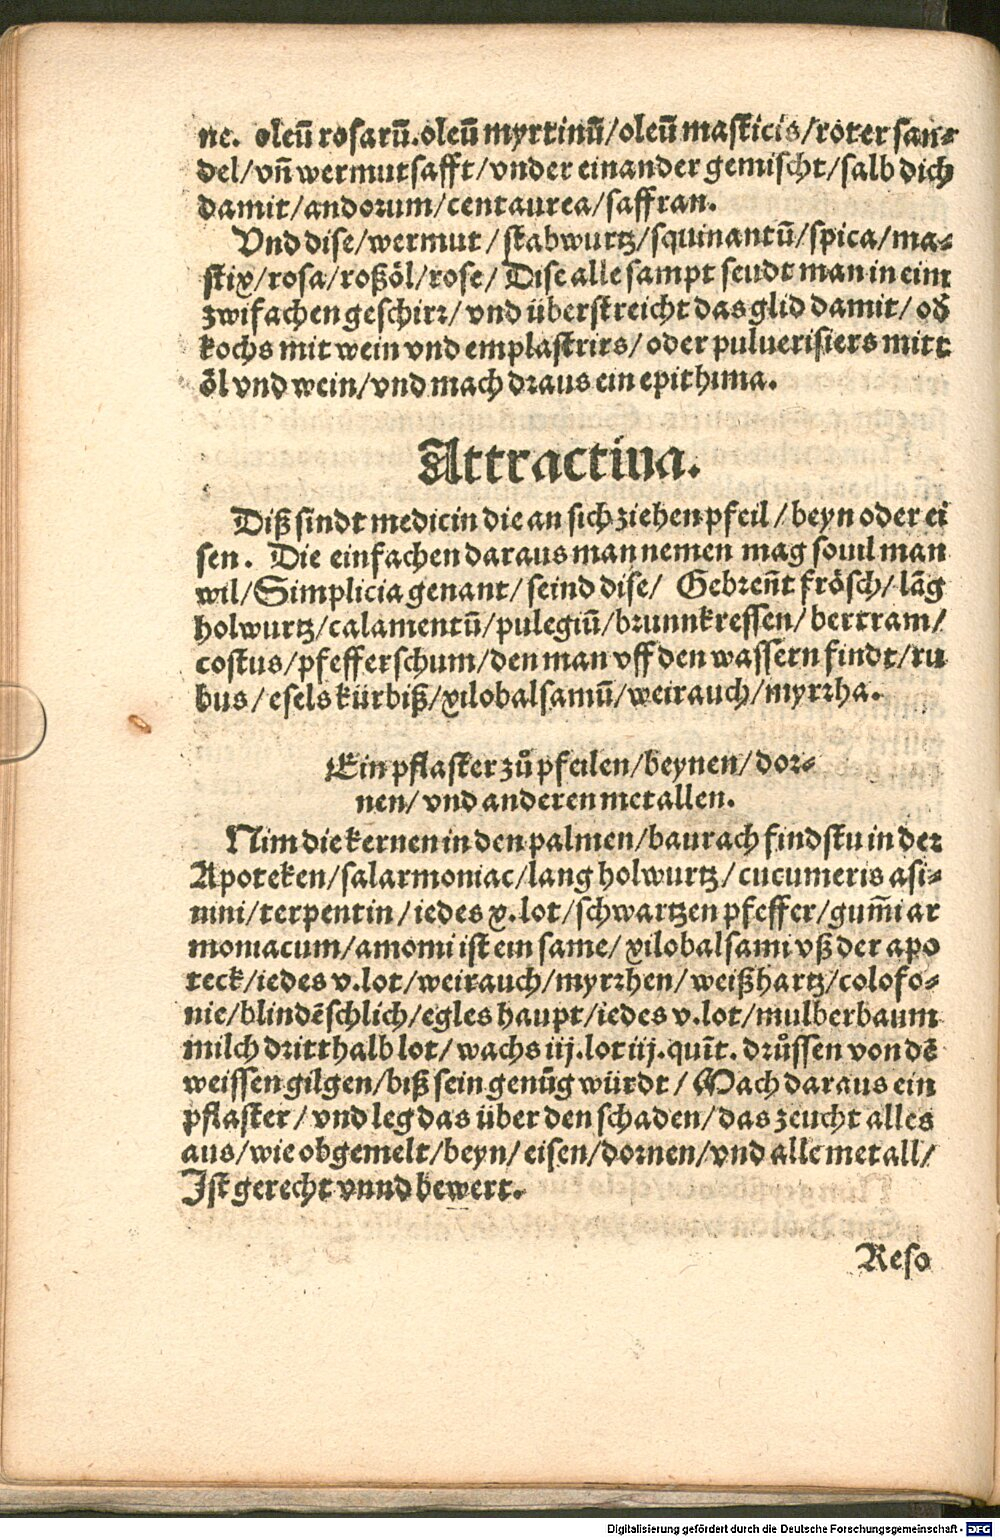 ne. oleū rosarū. oleū myrtinū/oleū masticis/roter san⸗
del/vñ wermutsafft/vnder einander gemischt/salb dich
damit/andorum/centaurea/saffran.
Vnd dise/wermut/stabwurtz/squinantū/spica/ma⸗
stix/rosa/roßöl/rose/ Dise alle sampt seudt man in eim
zwifachen geschirr/ vnd überstreicht das glid damit/ od̄
kochs mit wein vnd emplastrirs/ oder puluerisiers mitt
öl vnd wein/vnd mach draus ein epithima.
Attractiua.
Diß sindt medicin die an sich ziehen pfeil/beyn oder ei
sen. Die einfachen daraus man nemen mag souil man
wil/Simplicia genant/ seind dise/ Gebreñt frösch/lāg
holwurtz/calamentū/pulegiū/brunnkressen/bertram/
costus/pfefferschum/den man vff den wassern findt/ru
bus/esels kürbiß/xilobalsamū/weirauch/myrrha.
Ein pflaster zů pfeilen/beynen/dor⸗
nen/vnd anderen metallen.
Nim die kernen in den palmen/baurach findstu in der
Apoteken/salarmoniac/lang holwurtz/cucumeris asi⸗
nini/terpentin/iedes x. lot/schwartzen pfeffer/gum̄i ar
moniacum/amomi ist ein same/xilobalsami vß der apo
teck/iedes v. lot/weirauch/myrrhen/weißhartz/colofo⸗
nie/blindēschlich/egles haupt/iedes v. lot/mulberbaum
milch dritthalb lot/ wachs iij. lot iij. quīt. drůssen von dē
weissen gilgen/biß sein genūg würdt/ Mach daraus ein
pflaster/ vnd leg das über den schaden/das zeucht alles
aus/wie obgemelt/beyn/eisen/dornen/vnd alle metall/
Ist gerecht vnnd bewert.
Reso
Digitalisierung gefördert durch die Deutsche Forschungsgemeinschaft - DFG